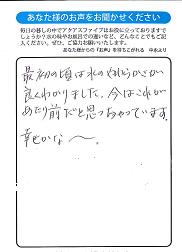 あなた様のお声をお聞かせください
毎日の暮しの中でアクアスファイブはお役に立っておりますで
しょうか？水の味やお風呂での違いなど、どんなことでもご記
入ください。ぜひ、ご協力お願いいたします。
あなた様からの「お声」を待ちこがれる　中水より
最初の頃は水のやわらかさが
良くわかりました。今はこれが
あたり前だと思っちゃっています。
幸せかな〜。